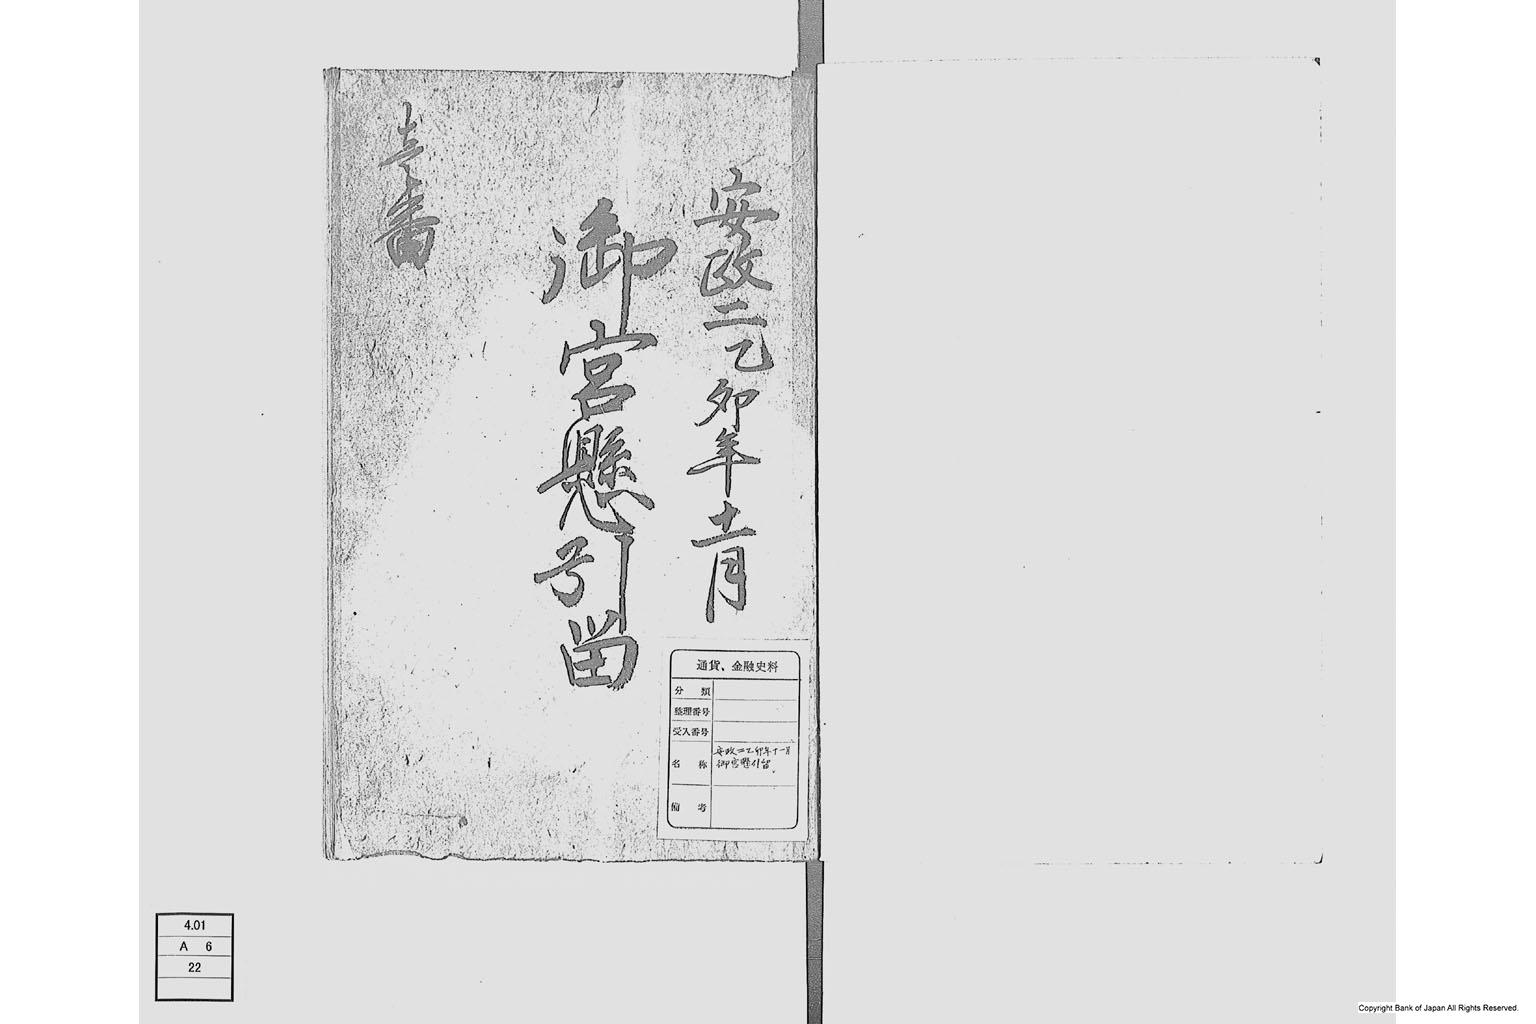 安政二乙卯年十一月
御宮懸引留
壱番
通貨、金融史料
分類
整理番号
受入番号
名称
安政二乙卯年十一月
御宮懸引留
備考
4.01
A 6
22
Copyright Bank of Japan All Rights Reserved.